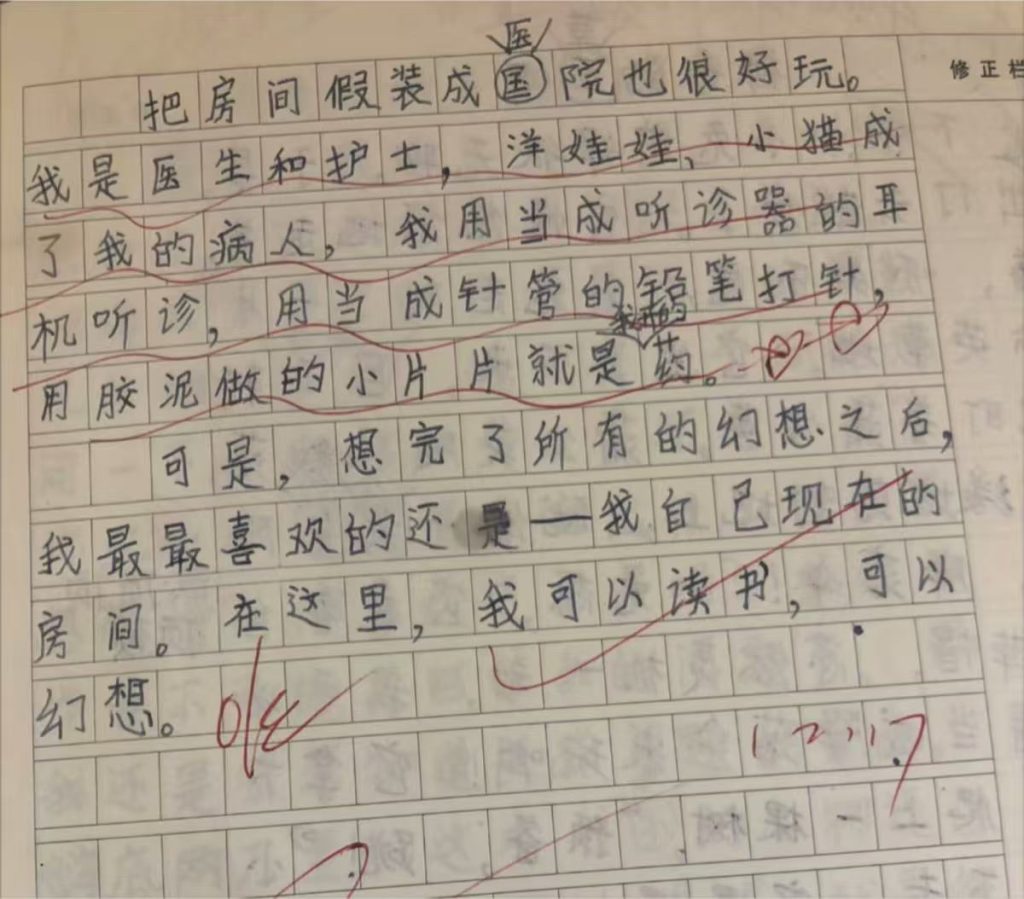 医
把房间假装成国院也很好玩。
修正栏
我是医生和护士，洋娃娃、小猫成
了我的病人，我用当成听诊器的耳
机听诊，用当成针管的铅笔打针，
用胶泥做的小片片就是药。
可是，想完了所有的幻想之后，
我最最喜欢的还是——我自己现在的
房间。在这里，我可以读书，可以
幻想。
12.17